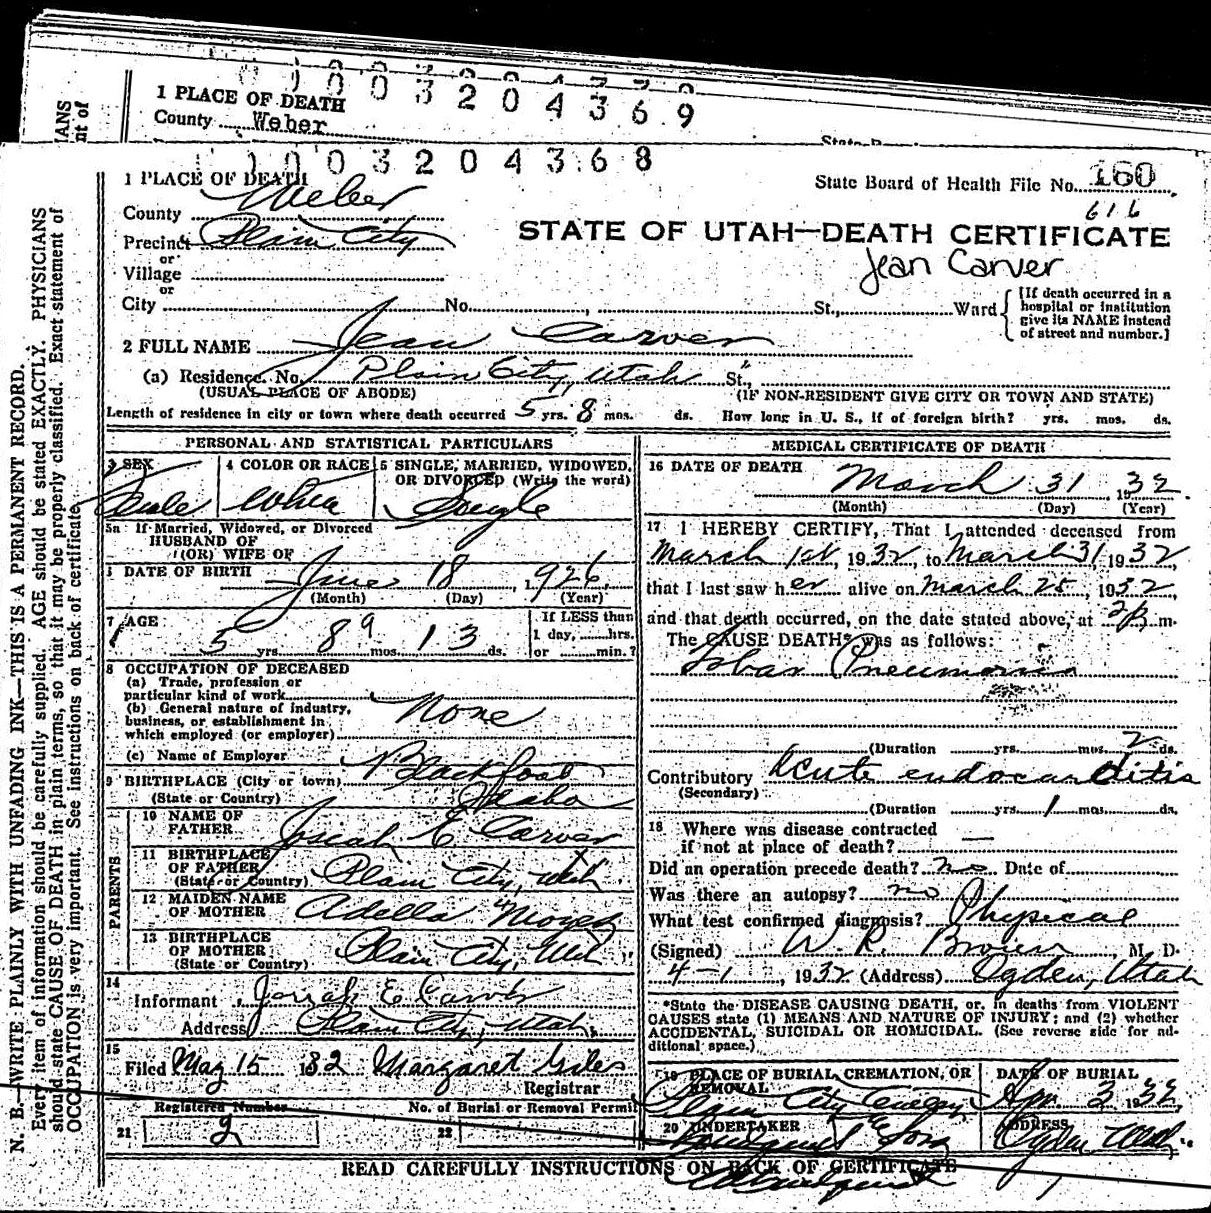 1 PLACE OF DEATH
County Weber
State
0 0 3 2 0 4 3 6 9
1 0 0 3 2 0 4 3 6 8
1 PLACE OF DEATH
County Weber
Precinct Plain City
or
Village
or
City No. , St., Ward
State Board of Health File No. 160
616
STATE OF UTAH—DEATH CERTIFICATE
Jean Carver
[If death occurred in a
hospital or institution
give its NAME instead
of street and number.]
2 FULL NAME Jean Carver
(a) Residence. No. Plain City, Utah St.,
(USUAL PLACE OF ABODE) (IF NON-RESIDENT GIVE CITY OR TOWN AND STATE)
Length of residence in city or town where death occurred 5 yrs. 8 mos. ds. How long in U. S., if of foreign birth? yrs. mos. ds.
PERSONAL AND STATISTICAL PARTICULARS
3 SEX 4 COLOR OR RACE 5 SINGLE, MARRIED, WIDOWED,
OR DIVORCED (Write the word)
White Single
5a If Married, Widowed, or Divorced
HUSBAND OF
(OR) WIFE OF
DATE OF BIRTH June 18, 1926
(Month) (Day) (Year)
7 AGE 5 yrs. 8 9 mos. 13 ds.
If LESS than
1 day, hrs.
or min.?
8 OCCUPATION OF DECEASED
(a) Trade, profession or
particular kind of work
(b) General nature of industry,
business, or establishment in
which employed (or employer) None
(c) Name of Employer
9 BIRTHPLACE (City or town) Blackfoot
(State or Country) Idaho
PARENTS
10 NAME OF
FATHER Josiah E Carver
11 BIRTHPLACE
OF FATHER
(State or Country) Plain City, Utah
12 MAIDEN NAME
OF MOTHER Adella
13 BIRTHPLACE
OF MOTHER
(State or Country) Plain City, Utah
14
Informant Josiah E Carver
Address Plain City, Utah,
15
Filed May 15 1932 Margaret Giles
Registrar
Registered Number No. of Burial or Removal Permit
21 2 22
MEDICAL CERTIFICATE OF DEATH
16 DATE OF DEATH
March 31, 1932
(Month) (Day) (Year)
17 I HEREBY CERTIFY, That I attended deceased from
March 1st, 1932, to March 31 1932,
that I last saw her alive on March 25, 1932,
and that death occurred, on the date stated above, at m.
The CAUSE DEATH* was as follows:
Lobar Pneumonia
(Duration yrs. mos. 2 ds.
Contributory Acute endocarditis
(Secondary)
(Duration yrs. 1 mos. ds.
18 Where was disease contracted
if not at place of death? —
Did an operation precede death? no Date of
Was there an autopsy? no
What test confirmed diagnosis? Physical
(Signed) W. R. Brown, M. D.
4-1, 1932 (Address) Ogden, Utah
*State the DISEASE CAUSING DEATH, or, in deaths from VIOLENT
CAUSES state (1) MEANS AND NATURE OF INJURY; and (2) whether
ACCIDENTAL, SUICIDAL OR HOMICIDAL. (See reverse side for ad-
ditional space.)
19 PLACE OF BURIAL, CREMATION, OR
REMOVAL
Plain City Cemetery
DATE OF BURIAL
Apr. 2 1932,
20 UNDERTAKER
& Sons
ADDRESS
Ogden Utah.
READ CAREFULLY INSTRUCTIONS ON BACK OF CERTIFICATE
N. B.—WRITE PLAINLY WITH UNFADING INK—THIS IS A PERMANENT RECORD.
Every item of information should be carefully supplied. AGE should be stated EXACTLY. PHYSICIANS
should state CAUSE OF DEATH in plain terms, so that it may be properly classified. Exact statement of
OCCUPATION is very important. See instructions on back of certificate.